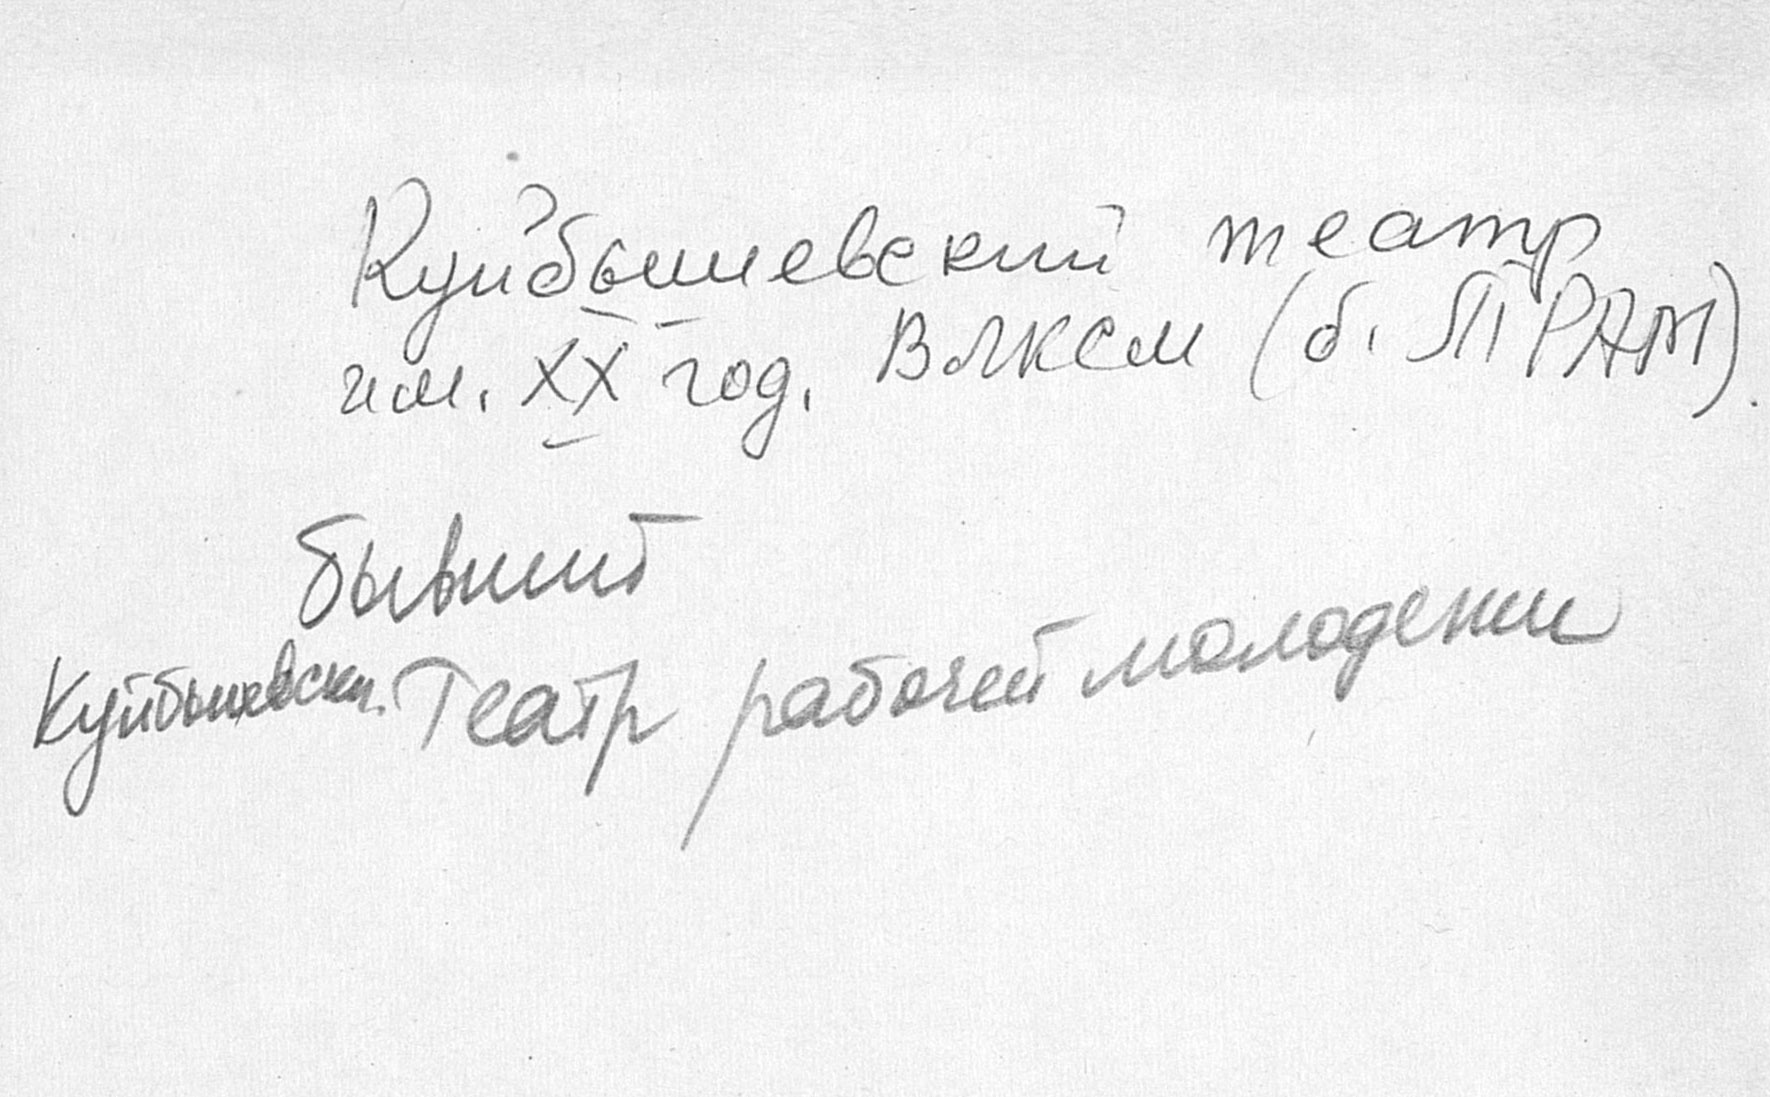 Куйбышевский театр
им. XX год. ВЛКСМ (б. ТРАМ).
бывший
Куйбышевск. Театр рабочей молодежи